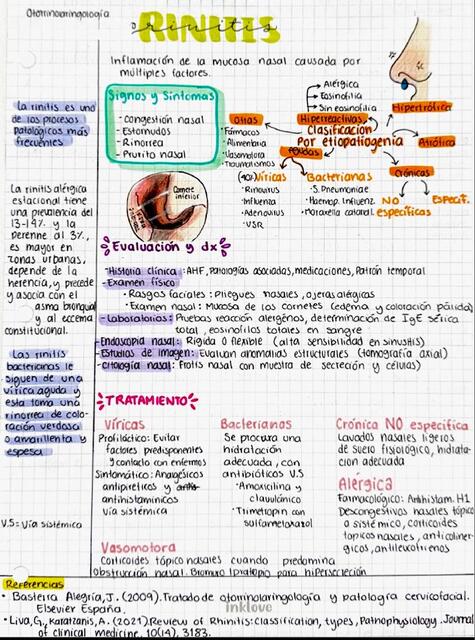 Otorrinolaringología
RINITIS
rinitis
Inflamación de la mucosa nasal causada por
múltiples factores.
Signos y Síntomas
• Congestión nasal
• Estornudos
• Rinorrea
• Prurito nasal
Alérgica
Eosinofilia
Sin eosinofilia
Otras
Hiperreactivas
Clasificación
Por etiopatogenia
Hipertrófica
Atrófica
Crónicas
NO
específicas
Específ.
• Fármacos
• Alimentaria
• Vasomotora
• Traumatismos
Agudas
Víricas
• Rinovirus
• Influenza
• Adenovirus
• VSR
Bacterianas
• S. Pneumoniae
• Haemop. Influenz.
• Moraxella cataral.
Cornete
inferior
La rinitis es uno
de los procesos
patológicos más
frecuentes
La rinitis alérgica
estacional tiene
una prevalencia del
13-14% y la
perenne al 3%,
es mayor en
zonas urbanas,
depende de la
herencia, y precede
y asocia con el
asma bronquial
y al eccema
constitucional.
Las rinitis
bacterianas le
siguen de una
vírica aguda y
esta toma una
rinorrea de colo-
ración verdosa
o amarillenta y
espesa
V.S = Vía sistémica
Evaluación y dx
- Historia clínica: AHF, patologías asociadas, medicaciones, Patrón temporal
- Examen físico
• Rasgos faciales: Pliegues nasales, ojeras alérgicas
• Examen nasal: Mucosa de los cornetes (edema y coloración pálida)
- Laboratorios: Pruebas reacción alergénos, determinación de IgE sérica
total, eosinofilos totales en sangre
- Endoscopia nasal: Rígida o flexible (alta sensibilidad en sinusitis)
- Estudios de imagen: Evaluan anomalías estructurales (tomografía axial)
- Citología nasal: Frotis nasal con muestra de secreción y células)
TRATAMIENTO
Víricas
Profiláctico: Evitar
factores predisponentes
y contacto con enfermos
Sintomático: Analgésicos
antipireticos y
antihistamínicos
vía sistémica
Bacterianas
Se procura una
hidratación
adecuada, con
antibióticos V.S
• Amoxicilina y
clavulánico
• Trimetoprin con
sulfametoxazol
Crónica NO específica
Lavados nasales ligeros
de suero fisiológico, hidrata-
ción adecuada
Alérgica
Farmacológico: Antihistam. H1
Descongestivos nasales tópico
o sistémico, corticoides
topicos nasales, anticoliner-
gicos, antileucotrienos
Vasomotora
Corticoides tópico nasales cuando predomina
obstrucción nasal. Bromuro Ipratopio para hipersecreción
Referencias
• Basterra Alegría, J. (2009). Tratado de otorrinolaringología y patología cervicofacial.
Elsevier España.
• Liva, G., Karatzanis, A. (2021) Review of Rhinitis: classification, types, Pathophysiology. Journal
of clinical medicine, 10(14), 3183.
inklove